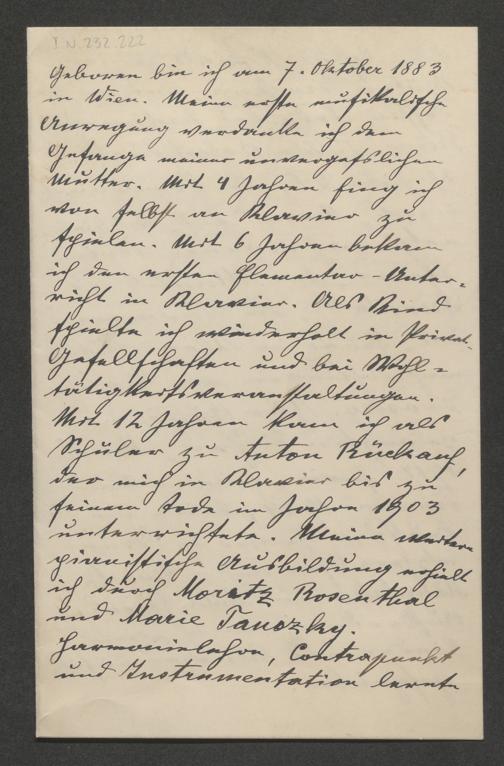 I.N. 232.222
Geboren bin ich am 7. Oktober 1883
in Wien. Meine erste musikalische
Anregung verdanke ich dem
Gesange meiner unvergesslichen
Mutter. Mit 4 Jahren fing ich
von selbst an Klavier zu
spielen. Mit 6 Jahren bekam
ich den ersten Elementar-Unter-
richt in Klavier. Als Kind
spielte ich wiederholt in Privat-
Gesellschaften und bei Wohl-
tätigkeitsveranstaltungen.
Mit 12 Jahren kam ich als
Schüler zu Anton Rückauf,
der mich in Klavier bis zu
seinem Tode im Jahre 1903
unterrichtete. Meine weitere
pianistische Ausbildung erhielt
ich durch Moritz Rosenthal
und Marie
Harmonielehre, Contrapunkt
und Instrumentation lernte